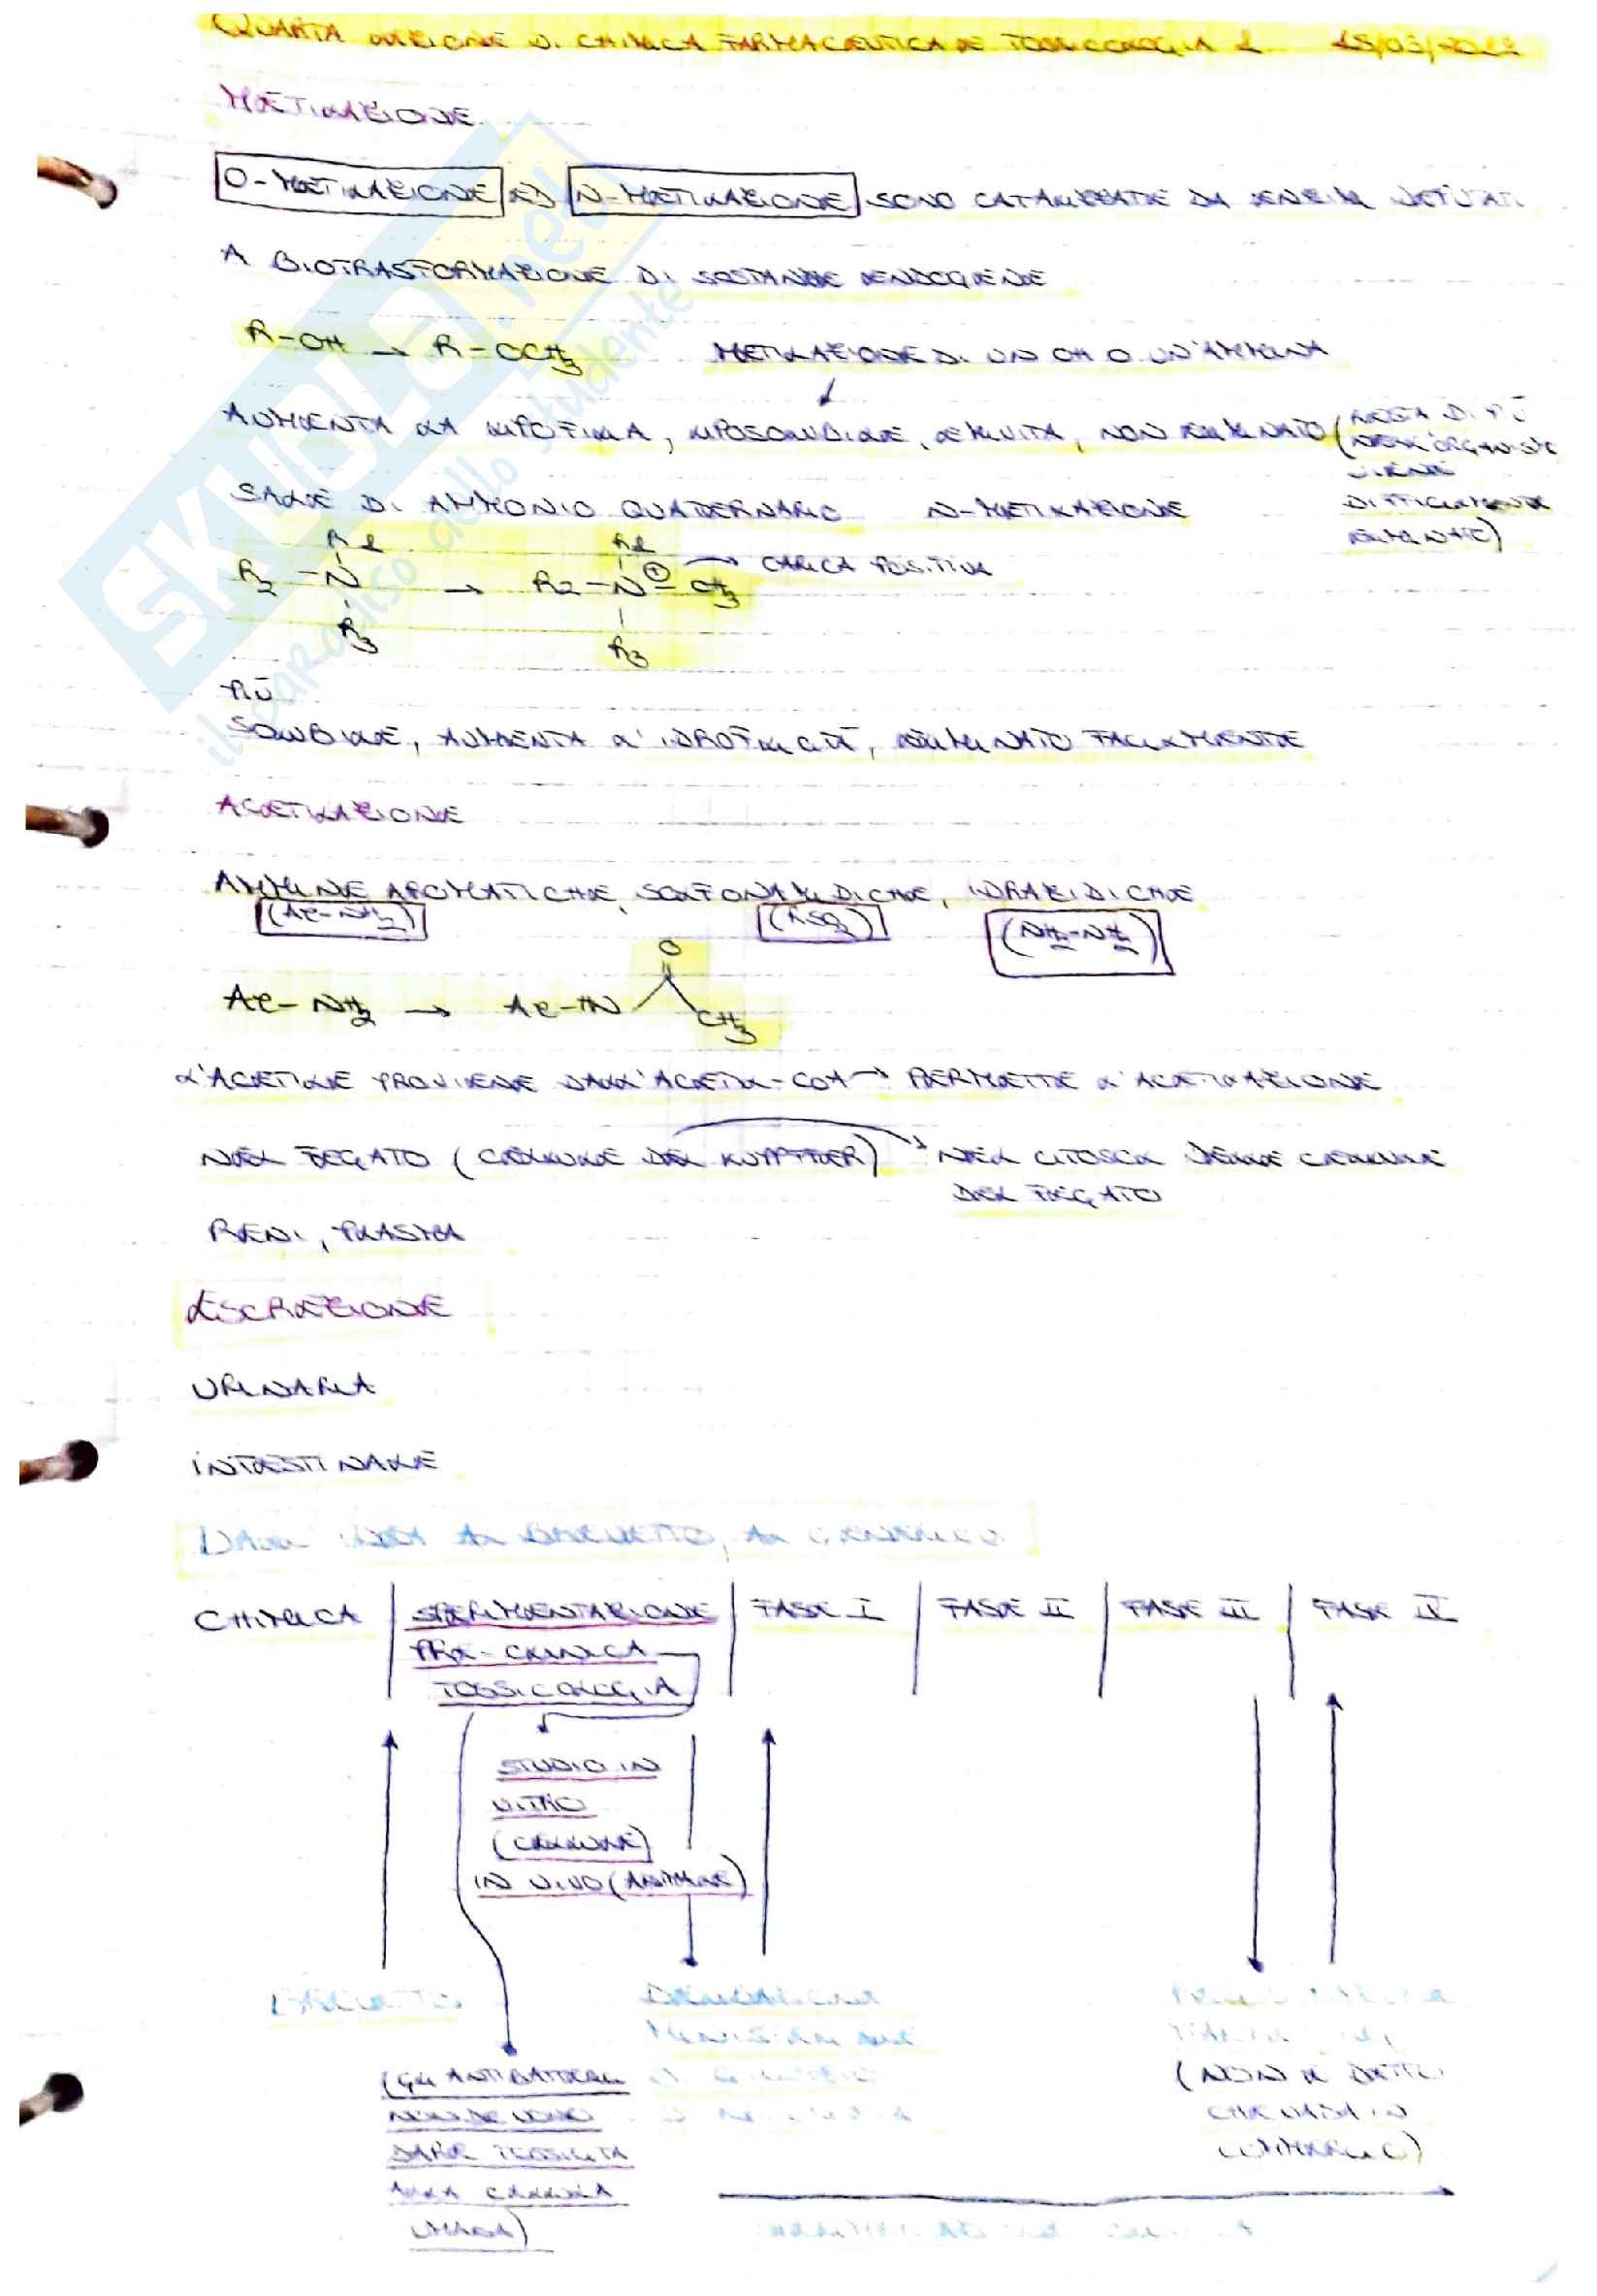 QUARTA LEZIONE DI CHIMICA FARMACEUTICA E TOSSICOLOGIA 1 15/03/2012
METILAZIONE
O-METILAZIONE ED N-METILAZIONE SONO CATALIZZATE DA ENZIMI DEPUTATI
A BIOTRASFORMAZIONE DI SOSTANZE ENDOGENE
R-OH → R-OCH3 METILAZIONE DI UN OH O UN'AMMINA
AUMENTA LA LIPOFILIA, LIPOSOLUBILE, EMIVITA, NON ELIMINATO (RESTA DI PIÙ
NELL'ORGANISMO
VIENE
SALE DI AMMONIO QUATERNARIO N-METILAZIONE DIFFICILMENTE
ELIMINATO)
R1 R1 → CARICA POSITIVA
R2-N → R2-N⊕-CH3
R3 R3
PIÙ
SOLUBILE, AUMENTA L'IDROFILICITÀ, ELIMINATO FACILMENTE
ACETILAZIONE
AMMINE AROMATICHE, SOLFONAMIDICHE, IDRAZIDICHE
(Ar-NH2) (RSO2) (NH2-NH2)
Ar-NH2 → Ar-HN O CH3
L'ACETILE PROVIENE DALL'ACETIL-COA → PERMETTE L'ACETILAZIONE
NEL FEGATO (CELLULE DEL KUPFFER) → NEL CITOSOL DELLE CELLULE
DEL FEGATO
RENI, PLASMA
ESCREZIONE
URINARIA
INTESTINALE
DALL'IDEA AL BREVETTO, AL GENERICO
CHIMICA SPERIMENTAZIONE FASE I FASE II FASE III FASE IV
PRE-CLINICA
TOSSICOLOGIA
STUDIO IN
VITRO
(CELLULE)
IN VIVO (ANIMALE)
BREVETTO
(GLI ANTIBATTERICI
NON DEVONO
DARE TOSSICITÀ
ALLA CELLULA
UMANA)
(NON È DETTO
CHE VADA IN
COMMERCIO)